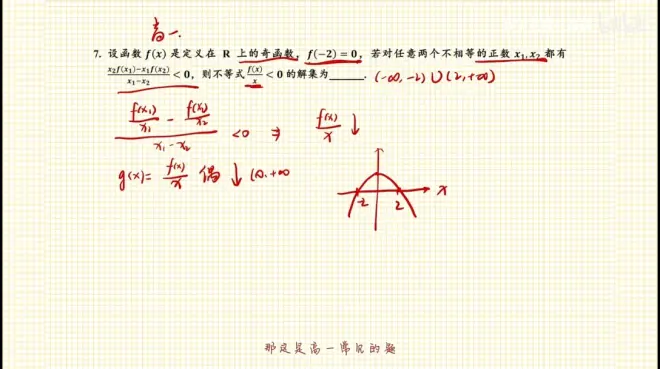 高一.
7. 设函数 f(x) 是定义在 R 上的奇函数，f(−2) = 0，若对任意两个不相等的正数 x₁, x₂ 都有
(x₂f(x₁)−x₁f(x₂))/(x₁−x₂) < 0，则不等式 f(x)/x < 0 的解集为______. (-∞, -2) ∪ (2, +∞)
(f(x₁)/x₁ - f(x₂)/x₂)/(x₁ - x₂) < 0 ⇒ f(x)/x ↓
g(x) = f(x)/x 偶 ↓ (0, +∞
-2 2 x
那这是高一常见的题